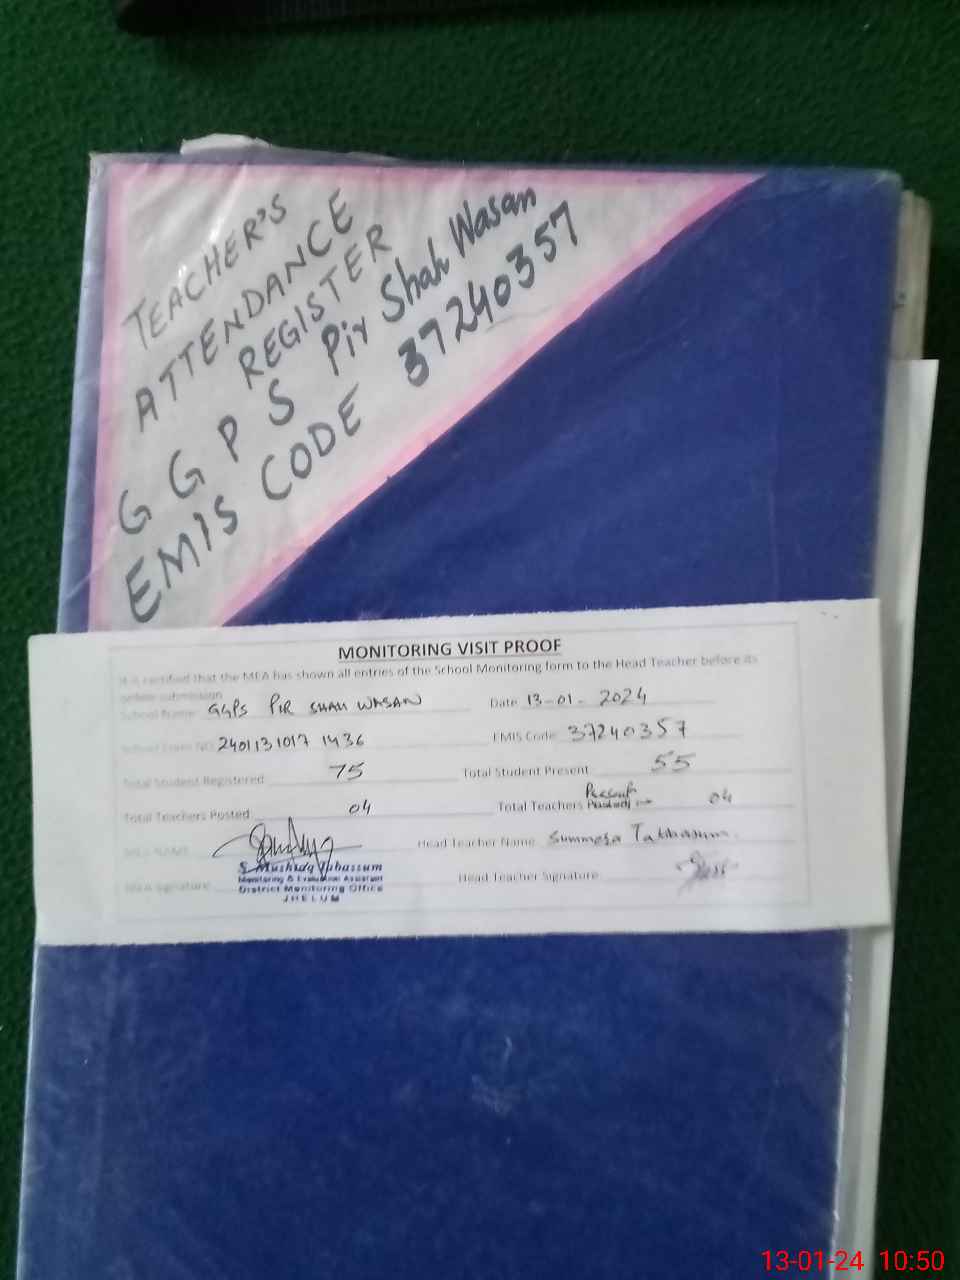 TEACHER'S
ATTENDANCE
REGISTER
G G P S Pir Shah Wasan
EMIS CODE 37240357
MONITORING VISIT PROOF
It is certified that the MEA has shown all entries of the School Monitoring form to the Head Teacher before its
online submission
School Name: GGPS PIR SHAH WASAN Date 13-01-2024
2401131017 1436 EMIS Code: 37240357
Total Student Registered 75 Total Student Present 55
Total Teachers Posted 04 Total Teachers Present 04
MEA NAME Head Teacher Name Summera Tabbasum
S. Mushtaq Tabassum
Monitoring & Evaluation Assistant
MEA Signature Head Teacher Signature
District Monitoring Office
JHELUM
13-01-24 10:50